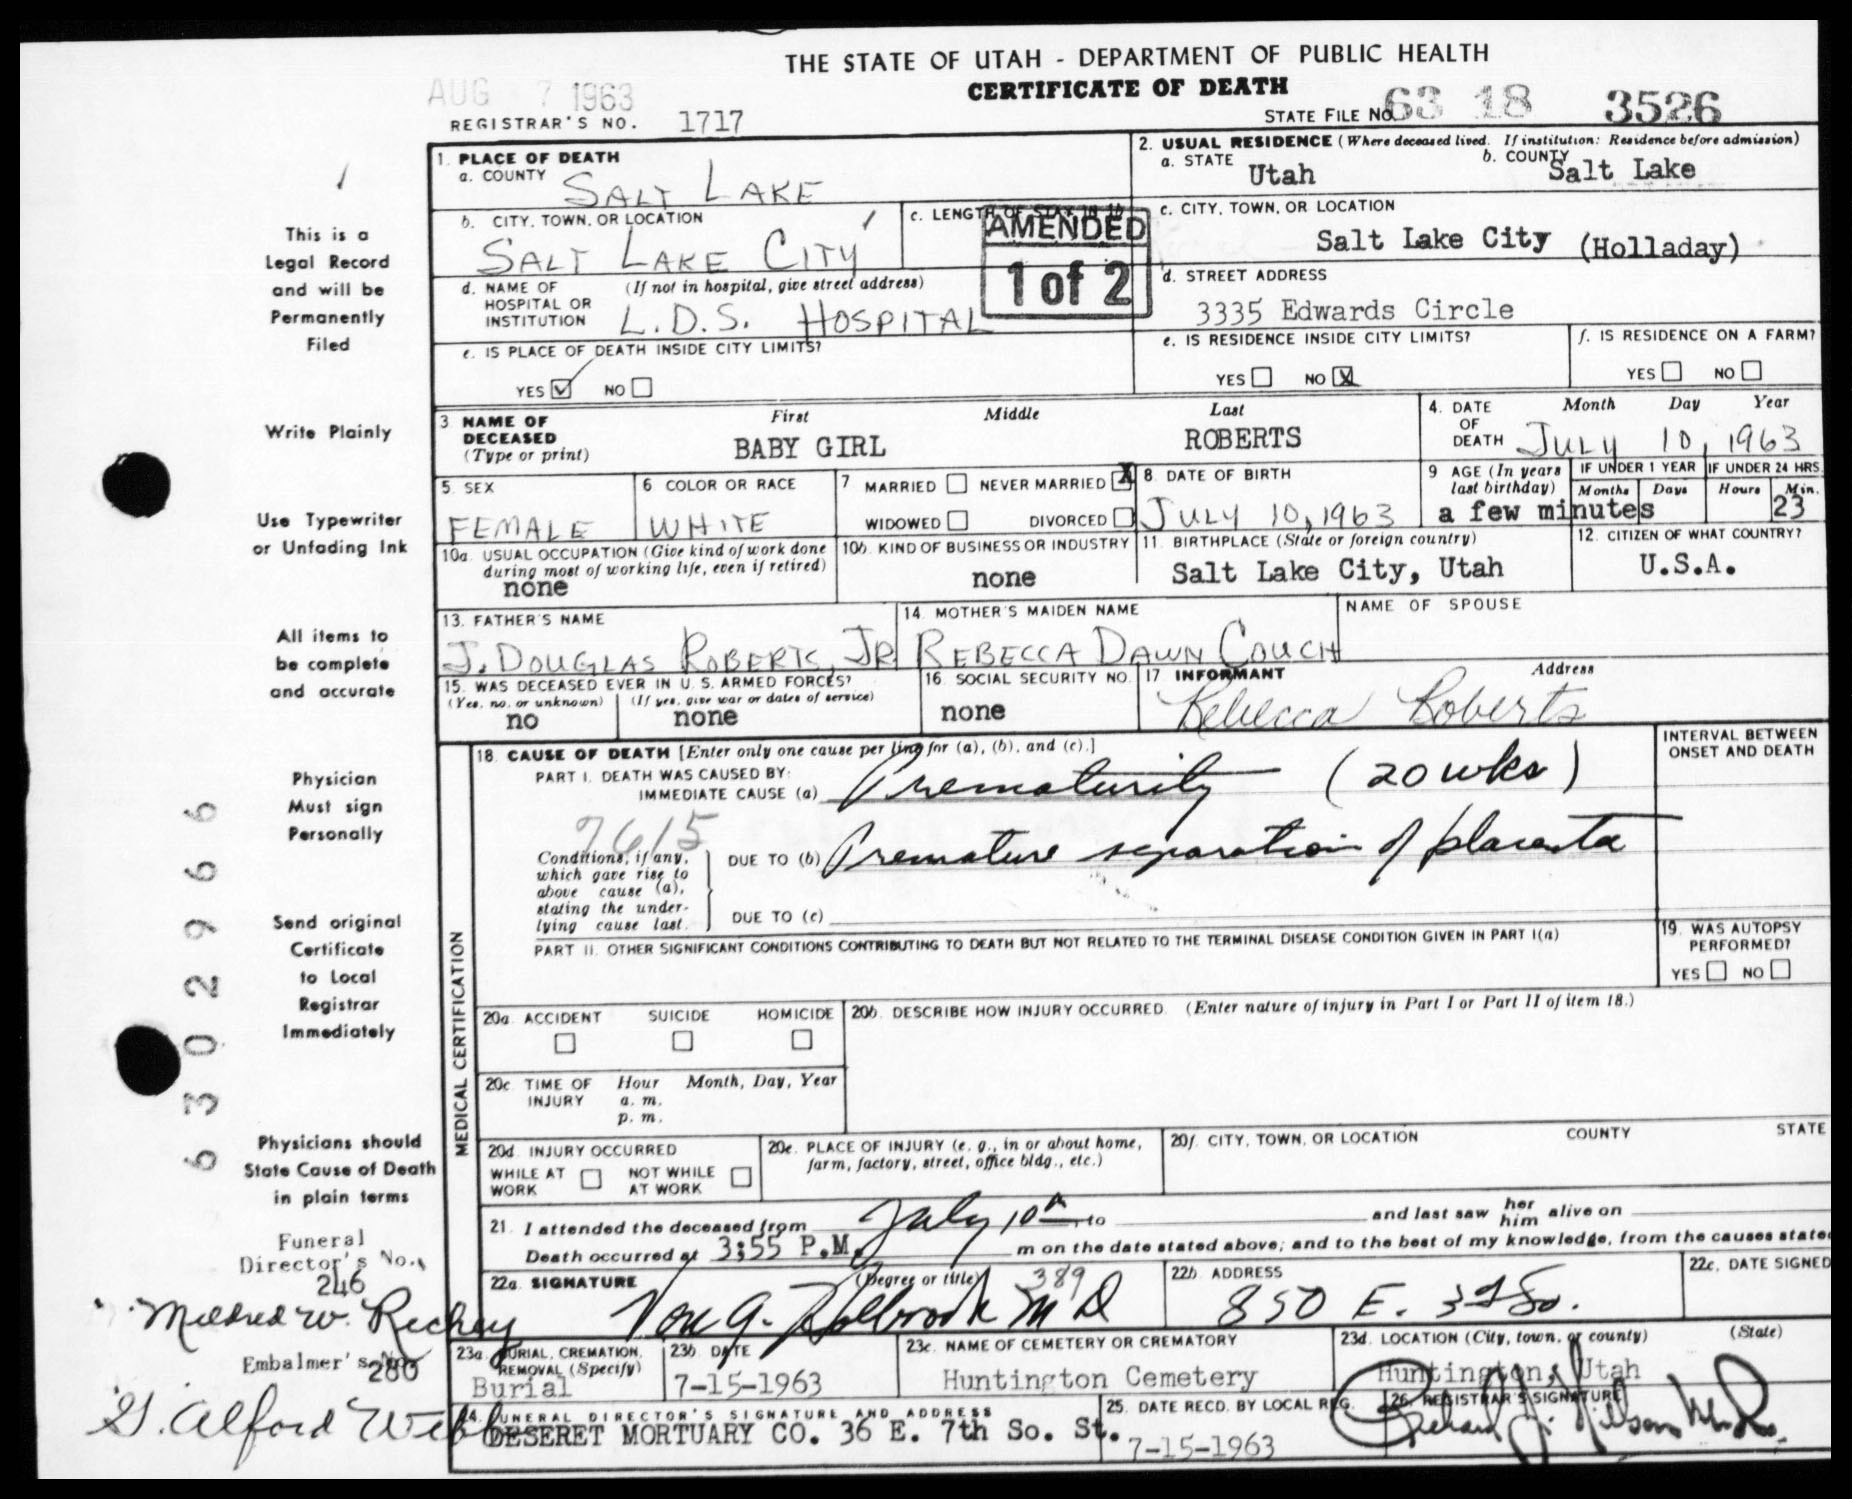 THE STATE OF UTAH - DEPARTMENT OF PUBLIC HEALTH
CERTIFICATE OF DEATH
AUG 7 1963
REGISTRAR'S NO. 1717
STATE FILE NO. 63 18 3526
1. PLACE OF DEATH
a. COUNTY SALT LAKE
b. CITY, TOWN, OR LOCATION
SALT LAKE CITY
c. LENGTH OF STAY IN 1b
AMENDED
1 of 2
d. NAME OF HOSPITAL OR INSTITUTION (If not in hospital, give street address)
L.D.S. HOSPITAL
e. IS PLACE OF DEATH INSIDE CITY LIMITS?
YES NO
2. USUAL RESIDENCE (Where deceased lived. If institution: Residence before admission)
a. STATE Utah
b. COUNTY Salt Lake
c. CITY, TOWN, OR LOCATION
Salt Lake City (Holladay)
d. STREET ADDRESS
3335 Edwards Circle
e. IS RESIDENCE INSIDE CITY LIMITS?
YES NO X
f. IS RESIDENCE ON A FARM?
YES NO
3 NAME OF DECEASED (Type or print)
First Middle Last
BABY GIRL ROBERTS
4. DATE OF DEATH Month Day Year
JULY 10, 1963
5. SEX
FEMALE
6 COLOR OR RACE
WHITE
7 MARRIED NEVER MARRIED X
WIDOWED DIVORCED
8. DATE OF BIRTH
JULY 10, 1963
9 AGE (In years last birthday)
a few minutes
IF UNDER 1 YEAR
Months Days
IF UNDER 24 HRS.
Hours Min.
23
10a. USUAL OCCUPATION (Give kind of work done during most of working life, even if retired)
none
10b. KIND OF BUSINESS OR INDUSTRY
none
11. BIRTHPLACE (State or foreign country)
Salt Lake City, Utah
12. CITIZEN OF WHAT COUNTRY?
U.S.A.
13. FATHER'S NAME
J. DOUGLAS ROBERTS, JR
14. MOTHER'S MAIDEN NAME
REBECCA DAWN COUCH
NAME OF SPOUSE
15. WAS DECEASED EVER IN U. S. ARMED FORCES?
(Yes, no, or unknown) (If yes, give war or dates of service)
no none
16. SOCIAL SECURITY NO.
none
17 INFORMANT Address
Rebecca Roberts
MEDICAL CERTIFICATION
18. CAUSE OF DEATH [Enter only one cause per line for (a), (b), and (c).]
INTERVAL BETWEEN ONSET AND DEATH
PART I. DEATH WAS CAUSED BY:
IMMEDIATE CAUSE (a) Prematurity (20 wks)
7615
Conditions, if any, which gave rise to above cause (a), stating the underlying cause last.
DUE TO (b) Premature separation of placenta
DUE TO (c)
PART II. OTHER SIGNIFICANT CONDITIONS CONTRIBUTING TO DEATH BUT NOT RELATED TO THE TERMINAL DISEASE CONDITION GIVEN IN PART I(a)
19. WAS AUTOPSY PERFORMED?
YES NO
20a. ACCIDENT SUICIDE HOMICIDE
20b. DESCRIBE HOW INJURY OCCURRED. (Enter nature of injury in Part I or Part II of item 18.)
20c. TIME OF INJURY Hour Month, Day, Year
a. m.
p. m.
20d. INJURY OCCURRED
WHILE AT WORK NOT WHILE AT WORK
20e. PLACE OF INJURY (e. g., in or about home, farm, factory, street, office bldg., etc.)
20f. CITY, TOWN, OR LOCATION COUNTY STATE
21. I attended the deceased from July 10th, to and last saw her him alive on
Death occurred at 3:55 P.M. m on the date stated above; and to the best of my knowledge, from the causes state
22a. SIGNATURE (Degree or title) 389
Von G. Holbrook M D
22b. ADDRESS
850 E. 3rd So.
22c. DATE SIGNED
23a. BURIAL, CREMATION, REMOVAL (Specify)
Burial
23b. DATE
7-15-1963
23c. NAME OF CEMETERY OR CREMATORY
Huntington Cemetery
23d. LOCATION (City, town, or county) (State)
Huntington, Utah
24. FUNERAL DIRECTOR'S SIGNATURE AND ADDRESS
DESERET MORTUARY CO. 36 E. 7th So. St.
25. DATE RECD. BY LOCAL REG.
7-15-1963
26. REGISTRAR'S SIGNATURE
This is a
Legal Record
and will be
Permanently
Filed
Write Plainly
Use Typewriter
or Unfading Ink
All items to
be complete
and accurate
Physician
Must sign
Personally
Send original
Certificate
to Local
Registrar
Immediately
Physicians should
State Cause of Death
in plain terms
Funeral
Director's No.
246
Mildred W. Richey
Embalmer's No.
280
G. Alford Webb
63029669